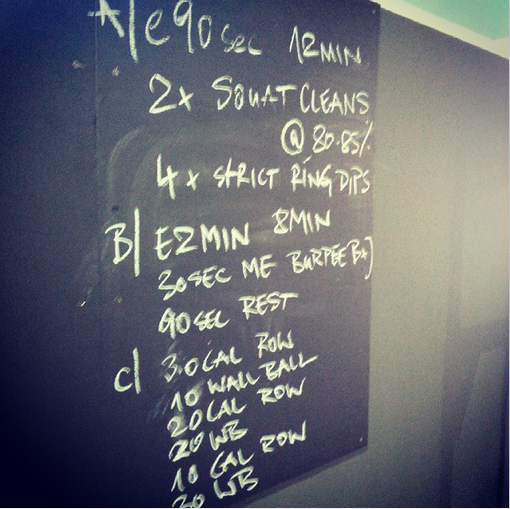 A/ e90sec 12MIN
2x SQUAT CLEANS
@ 80-85%
4x STRICT RING DIPS
B/ E2MIN 8MIN
30SEC ME BURPEE BxJ
90SEC REST
C/ 30CAL ROW
10 WALL BALL
20CAL ROW
20 WB
10 CAL ROW
30 WB